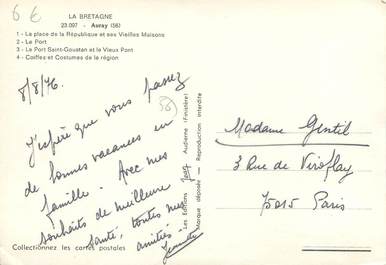 6 €
LA BRETAGNE
23 097 - Auray (56)
1 - La place de la République et ses Vieilles Maisons
2 - Le Port
3 - Le Port Saint-Goustan et le Vieux Pont
4 - Coiffes et Costumes de la région
8/8/76.
J'espère que vous passez
de bonnes vacances en
famille. Avec mes
souhaits de meilleure
santé, toutes mes
amitiés.
56
Les Editions Jean Audierne (Finistère)
Marque déposée - Reproduction interdite
Madame Gentil
3 Rue de Viroflay
75015 Paris
Collectionnez les cartes postales